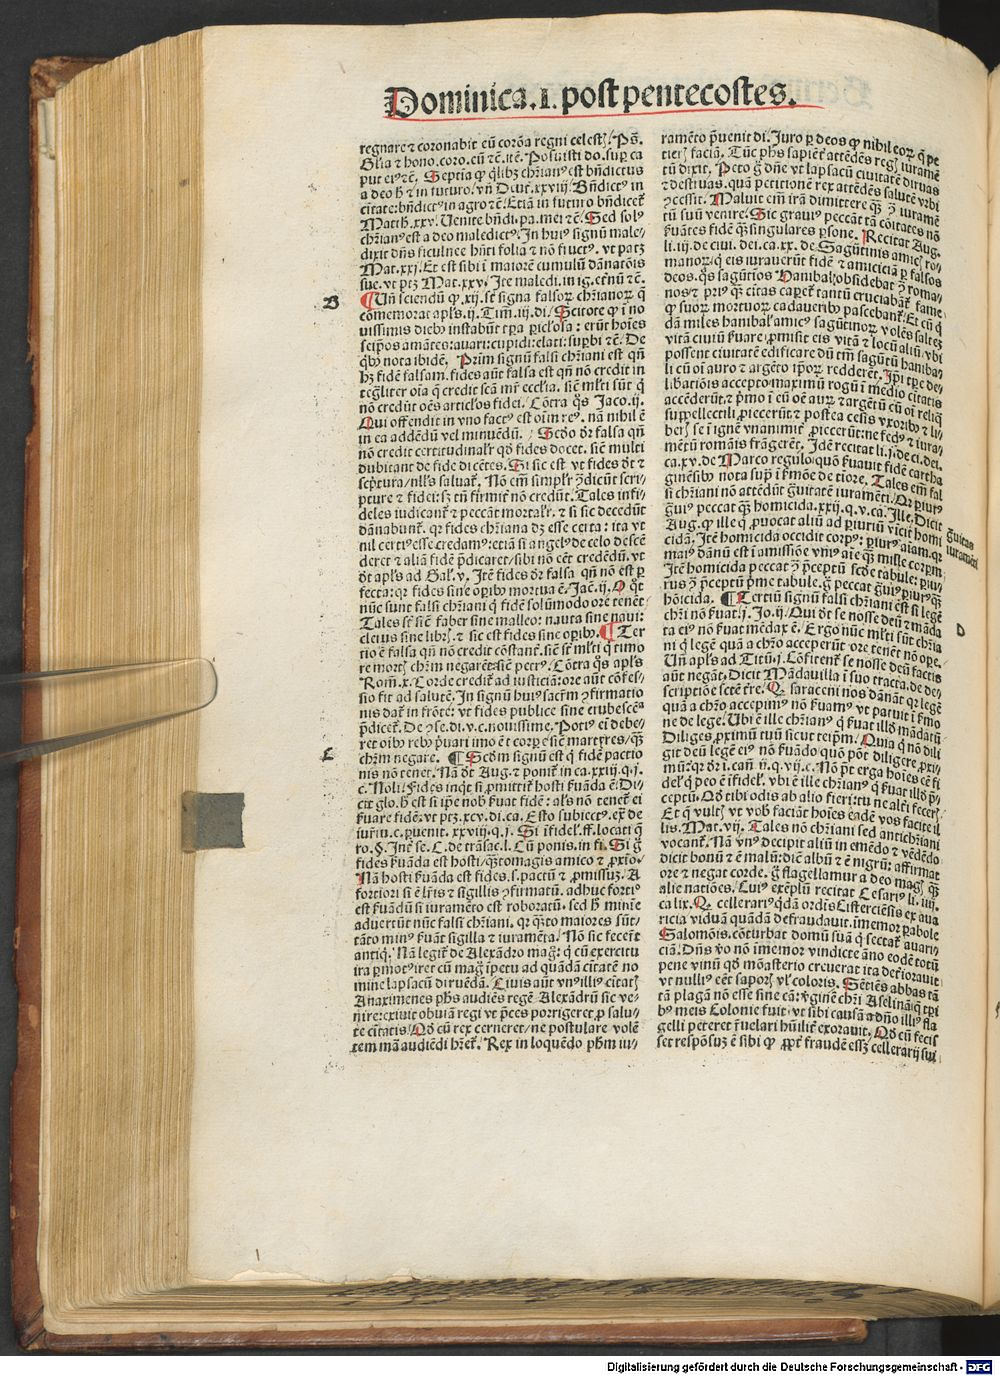 Dominica. I. post pentecostes.
regnare ⁊ coronabit eū corōa regni celestꝭ. Ps̄.
Gl̄ia ⁊ hono. coro. eū ⁊c̄. itē. Posuisti do. suꝑ ca
put eiꝰ ⁊c̄. Septīa ꝙ q̄libꝫ chr̄ianꝰ est bn̄dictus
a deo hic ⁊ in futuro. vn̄ Deut̄. xxviij. Bn̄dictꝰ in
ciuitate: bn̄dictꝰ in agro ⁊c̄. Etiā in futuro bn̄dicet̄
Matth. xxv. Uenite bn̄di. pa. mei ⁊c̄. Sed solꝰ
chr̄ianꝰ est a deo maledictꝰ. In huiꝰ signū male⸗
dixit dn̄s ficulnee hn̄ti folia ⁊ nō fructꝰ. vt patꝫ
Mat. xxi. Et est sibi ī maiorē cumulū dānatōis
sue. vt ptꝫ Mat. xxv. Ite maledi. in ig. et̄nū ⁊c̄.
B
¶ Un̄ sciendū ꝙ .xij. st̄ signa falsoꝝ chr̄ianoꝝ q̄
cōmemorat apl̄s. ij. Tim̄. iij. di. Scitote ꝙ ī no
uissimis diebꝰ instabūt tꝑa ꝑicl̄osa : erūt hoīes
seip̄os amātes: auari: cupidi: elati: suꝑbi ⁊c̄. De
q̄bꝰ nota ibidē. Primū signū falsi chr̄iani est qn̄
hꝫ fidē falsam. fides aūt falsa est qn̄ nō credit in
teg̃liter oīa q̄ credit scā mr̄ eccl̄ia. sic̄ ml̄ti sūt q̄
nō credūt oēs articl̄os fidei. Cōtra q̄s Jaco. ij.
Qui offendit in vno factꝰ est oīm reꝰ. nā nihil ē
in ea addēdū vel minuēdū. Scd̄o dr̄ falsa qn̄
nō credit certitudinalr̄ qd̄ fides docet. sic̄ multi
dubitant de fide dicētes. Si sic est vt fides dt̄ ⁊
scpt̄ura / nll̄s saluat̄. Nō em̄ simplr̄ ꝯdicūt scri⸗
pture ⁊ fidei: sꝫ tn̄ firmit̄ nō credūt. Tales infi⸗
deles iudicant̄ ⁊ peccāt mortalr̄. ⁊ si sic decedūt
dānabunt̄. qꝛ fides chr̄iana dꝫ esse certa : ita vt
nil certiꝰ esse credamꝰ: etiā si angelꝰ de celo descē
deret ⁊ aliā fidē p̄dicaret / sibi nō eēt credēdū. vt
dt̄ apl̄s ad Gal̄. v. Itē fides dr̄ falsa qn̄ nō est ꝑ
fecta: qꝛ fides sine oꝑibꝰ mortua ē. Jac̄. ij. O q̄t
nūc sunt falsi chr̄iani q̄ fidē solūmodo ore tenēt
Tales st̄ sic̄ faber sine malleo: nauta sine naui:
clericus sine libr̄. ⁊ sic est fides sine oꝑibꝰ. ¶ Ter
tio ē falsa qn̄ nō credit cōstant̄. sic̄ st̄ ml̄ti q̄ timo
re mortꝭ chr̄m negarēt: sic̄ petrꝰ. Cōtra q̄s apl̄s
Rom̄. x. Corde credit̄ ad iusticiā: ore aūt cōfes⸗
sio fit ad salutē. In signū huiꝰ sacr̄m ꝯfirmatio
nis dat̄ in frōte: vt fides publice sine erubescēa
p̄dicet̄. De ꝯse. di. v. c. nouissime. Potiꝰ em̄ debe⸗
ret oībꝰ rebꝰ p̄uari imo ⁊ corꝑe sic̄ martyres / q̄
C
chr̄m negare. ¶ Scdm̄ signū est q̄ fidē pactio
nis nō tenet. Nā dt̄ Aug. ⁊ ponit̄ in ca. xxiij. q. j.
c. Noli. Fides inq̄t si ꝓmittit̄ hosti ẜuāda ē. Di⸗
cit glo. hoc est si ip̄e nobꝭ ẜuat fidē: als̄ nō tenet̄ ei
ẜuare fidē: vt ptꝫ. xcv. di. ca. Esto subiectꝰ. ex̄ de
iur̄iu. c. ꝑuenit. xxviij. q. j. Si īfidel̄. ff. locati q̄
ro. §. Int̄ se. C. de trāsac. l. Cū ponis. in fi. Si ḡ
fides ẜuāda est hosti / q̄stomagis amico ⁊ ꝓxīo.
Nā hosti ẜuāda est fides. s. pactū ⁊ ꝓmissuꝫ. A
fortiori si ē lr̄is ⁊ sigillis ꝯfirmatū. adhuc fortiꝰ
est ẜuādū si iuramēto est roboratū. sed hoc minīe
aduertūt nūc falsi chr̄iani. qꝛ q̄sto maiores sūt⸗
tāto minꝰ ẜuāt sigilla ⁊ iuramēta. Nō sic fecert̄
antiq̄. Nā legit̄ de Alexādro magꝭ: q̄ cū exercitu
ira ꝑmotꝰ iret cū mag̃ īpetu ad quādā ciuitatē no
mine lapsacū diruēdā. Ciuis aūt vnꝰ illiꝰ ciuitatꝭ
Anaximenes ph̄s audiēs regē Alexādrū sic ve⸗
nire: exiuit obuiā regi vt p̄ces porrigeret ꝓ salu⸗
te ciuitatis. Qd̄ cū rex cerneret / ne postulare volē
tem mā audiēdi hr̄et̄. Rex in loquēdo ph̄m iu⸗
ramēto p̄uenit di. Juro ꝑ deos ꝙ nihil eoꝝ q̄ pe
tierꝭ faciā. Tūc ph̄s sapiēt̄ attēdēs regꝭ iuramē
tū dixit. Peto ḡ dn̄e vt lapsacū ciuitatē diruas
⁊ destruas. quā petitionē rex attēdēs salutē vrbi
ꝯcessit. Maluit em̄ irā dimittere q̄ꝫ ꝯ iuramē
tū suū venire. Sic grauiꝰ peccāt tā cōitates nō
ẜuātes fidē q̄ꝫ singulares ꝑsone. Recitat Aug.
li. iij. de ciui. dei. ca. xx. de Sagūtinis amicꝭ ro⸗
manoꝝ / q̄ eis iurauerūt fidē ⁊ amiciciā ꝑ falsos
deos. q̄s sagūtios Hanibal obsidebat ꝯ roma⸗
nos / ⁊ priꝰ q̄ꝫ ciuitas caꝑet̄ tantū cruciabāt̄ fame
ꝙ suoꝝ mortuoꝝ cadaueribꝰ pascebant̄. Et cū q̄
dā miles hanibal̄ amicꝰ sagūtinoꝝ volēs saltem
vitā ciuiū ẜuare / ꝓmisit eis vitā ⁊ locū aliū / vbi
possent ciuitatē edificare dū tm̄ sagūtū haniba⸗
li cū oī auro ⁊ argēto ip̄oꝝ redderēt. Ip̄i tp̄e de⸗
libatiōis accepto maximū rogū ī medio ciuitatis
accēderūt. ⁊ pmo ī eū oē auꝝ ⁊ argētū cū oī reliq̄
suppellectili ꝓiecerūt: ⁊ postea cesis vxoribꝰ ⁊ li⸗
berꝭ se ī ignē vnanimit̄ ꝓiecerūt: ne fedꝰ ⁊ iura⸗
mētū romāis frāgerēt. Idē recitat li. j. de ci. dei.
ca. xv. de Marco regulo: quō ẜuauit fidē cartha
ginēsibꝰ nota supͣ ī ẜmōe de tiōre. Tales em̄ fal
si chr̄iani nō attēdūt g̃uitatē iuramēti. Qꝛ ꝑiurꝰ
g̃uiꝰ peccat q̄ꝫ homicida. xxij. q. v. ca. Ille. Dicit
Aug. ꝙ ille q̄ ꝓuocat aliū ad ꝑiuriū vīcit homi
cidā. Itē homicida occidit corpꝰ: ꝑiurꝰ aīam. qꝛ
maiꝰ dānū est ī amissiōe vniꝰ aīe q̄ꝫ mille corpm̄.
Itē homicida peccat ꝯ p̄ceptū scd̄e tabule: ꝑiu⸗
rus ꝯ p̄ceptū pͥme tabule. ḡ peccat g̃uiꝰ ꝑiurꝰ q̄ꝫ
g̃uitas
iuramēti
hōicida. ¶ Tertiū signū falsi chr̄iani est si legē
D
chr̄i nō ẜuat. j. Jo. ij. Qui dt̄ se nosse deū ⁊ māda
ta eiꝰ nō ẜuat mēdax ē. Ergo nūc ml̄ti sūt chr̄ia
ni q̄ legē quā a chr̄o acceperūt ore tenēt nō oꝑe.
Un̄ apl̄s ad Titū. j. Cōfitent̄ se nosse deū factis
aūt negāt. Dicit Mādauilla ī suo tracta. de de⸗
scriptiōe ſc̄te tr̄e. Q̄ saraceni nos dānāt qꝛ legē
quā a chr̄o accepimꝰ nō ẜuamꝰ vt patuit ī ẜmo
ne de lege. Ubi ē ille chr̄ianꝰ q̄ ẜuat illd̄ mādatū
Diliges ꝓximū tuū sicut teipm̄. Quia q̄ nō dili
git deū legē eiꝰ nō ẜuādo quō pōt diligere ꝓxi⸗
mū: qꝛ dr̄ ī can̄. ij. q. vij. c. Nō pt̄ erga hoīes eē fi
del̄ q̄ deo ē īfidel̄. vbi ē ille chr̄ianꝰ q̄ ẜuat illd̄ p̄⸗
ceptū. Qd̄ tibi odis ab alio fieri: tu ne alt̄i fecerꝭ
Et q̄ vultꝭ vt vobꝭ faciāt hoīes eadē vos facite il
lis. Mat. vij. Tales nō chr̄iani sed antichr̄iani
vocant̄. Nā vnꝰ decipit aliū in emēdo ⁊ vēdēdo
dicit bonū ⁊ ē malū: dic̄ albū ⁊ ē nigrū: affirmat
ore ⁊ negat corde. ḡ flagellamur a deo magꝭ q̄ꝫ
alie natiōes. Cuiꝰ exēplū recitat Cesariꝰ li. iiij.
ca. lix. Q̄ cellerariꝰ q̄dā ordīs Cisterciēsis ex aua
ricia viduā quādā defraudauit. īmemor ꝑabole
Salomōis. cōturbat domū suā q̄ sectat̄ auari⸗
ciā. Dn̄s v̄o nō īmemor vindicte āno eodē totū
pene vinū qd̄ mōasterio creuerat ita det̄iorauit
vt nulliꝰ eēt saporꝭ vl̄ coloris. Sētiēs abbas tā
tā plagā nō esse sine cā: v̓ginē chr̄i Aselinā q̄ tp̄i
bꝰ meis Colonie fuit. vt sibi causā a dn̄o illiꝰ fla
gelli peteret p̄uelari hūilit̄ exorauit. Qd̄ cū fecis
set respōsuꝫ ē sibi ꝙ ꝓpt̄ fraudē essꝫ cellerarij sui
Digitalisierung gefördert durch die Deutsche Forschungsgemeinschaft - DFG